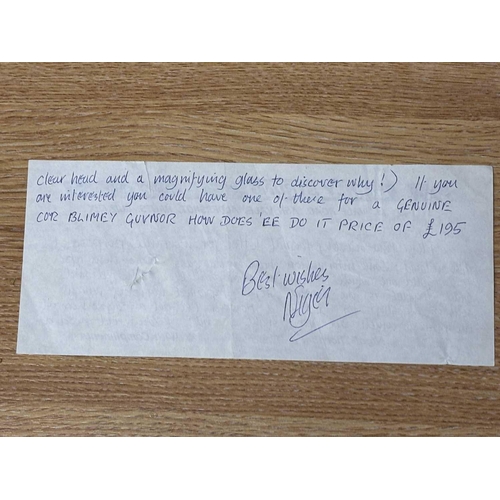 clear head and a magnifying glass to discover why!) If you
are interested you could have one of these for a GENUINE
COR BLIMEY GUVNOR HOW DOES 'EE DO IT PRICE OF £195
Best wishes
Nigel